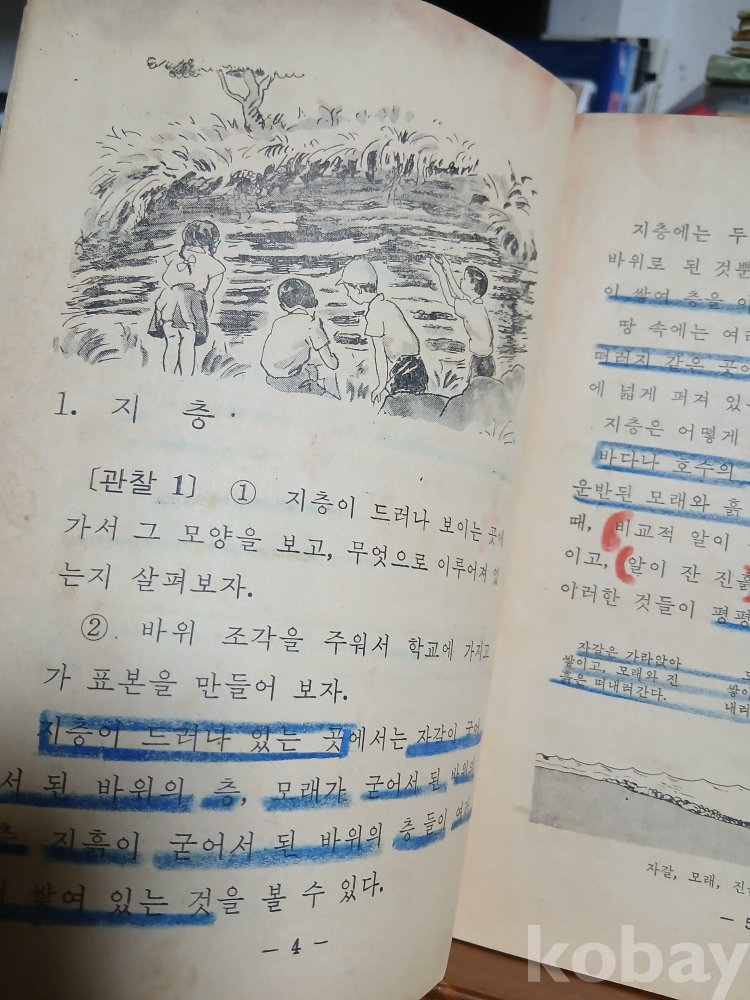 1. 지 층
[관찰 1] ① 지층이 드러나 보이는 곳에
가서 그 모양을 보고, 무엇으로 이루어져 있
는지 살펴보자.
② 바위 조각을 주워서 학교에 가지고
가 표본을 만들어 보자.
지층이 드러나 있는 곳에서는 자갈이 굳어
서 된 바위의 층, 모래가 굳어서 된 바위의
층, 지흙이 굳어서 된 바위의 층 들이
쌓여 있는 것을 볼 수 있다.
- 4 -
지층에는 두
바위로 된 것뿐
이 쌓여 층을
땅 속에는 여러
떠러지 같은 곳에
에 넓게 퍼져 있
지층은 어떻게
바다나 호수의
운반된 모래와 흙
때, 비교적 알이
이고, 알이 잔 진흙
아러한 것들이 평평
자갈은 가라앉아
쌓이고, 모래와 진
흙은 떠내려간다.
쌓이
내려
자갈, 모래, 진
- 5
kobay